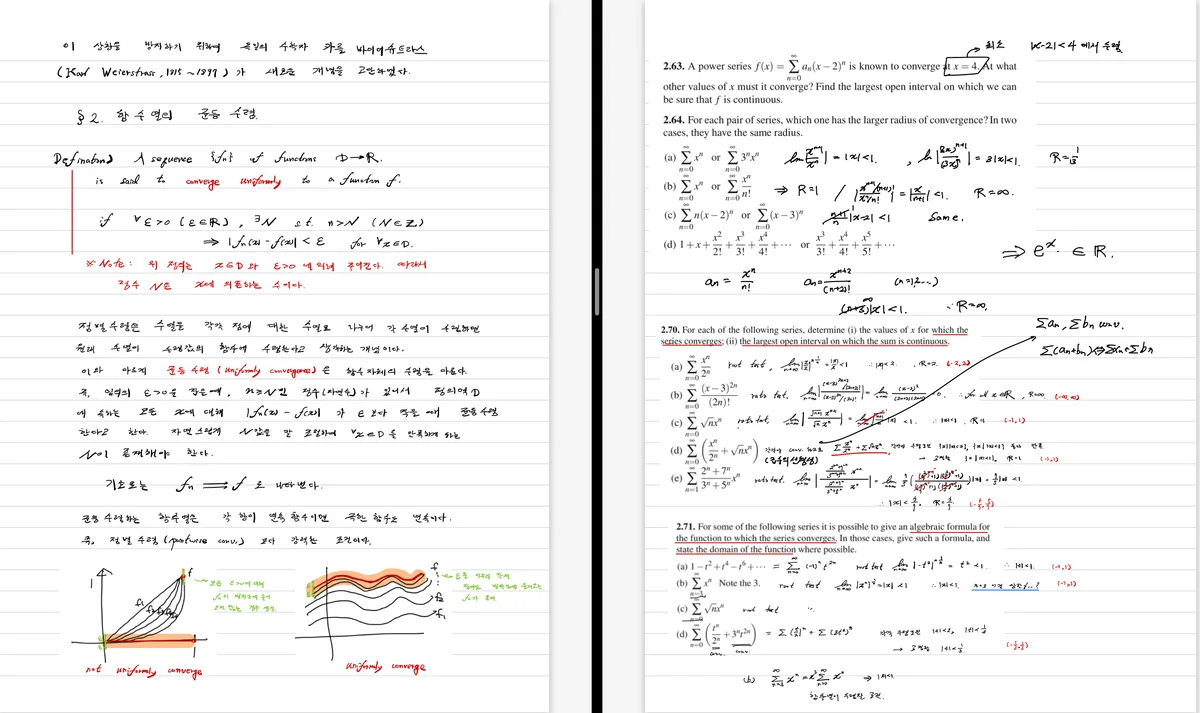 이 상황을 방지하기 위하여 독일의 수학자 카를 바이어슈트라스
(Karl Weierstrass, 1815 ~ 1897) 가 새로운 개념을 고안하였다.
§2. 함수열의 균등 수렴.
Definition) A sequence {fn} of functions D→R.
is said to converge uniformly to a function f.
if ∀ε>0 (ε∈R), ∃N s.t. n>N (N∈Z)
⇒ |fn(x) - f(x)| < ε for ∀x∈D.
※ Note : 위 정의는 x∈D 와 ε>0 에 의해 주어진다. 따라서
정수 N은 x에 의존하는 수이다.
점별수렴은 수열을 각각 점에 대한 수열로 나누어 각 수열이 수렴하면
원래 수열이 수렴값의 함수에 수렴한다고 생각하는 개념이다.
이와 다르게 균등 수렴 (uniformly convergence) 은 함수 자체의 수렴을 다룬다.
즉, 임의의 ε>0을 잡을 때, n≥N인 정수(자연수)가 있어서 정의역 D
에 속하는 모든 x에 대해 |fn(x) - f(x)| 가 ε 보다 작을 때 균등 수렴
한다고 한다. 자연스럽게 N값을 잘 조절하여 ∀x∈D 을 만족하게 하는
N이 존재해야 한다.
기호로는 fn ⇒ f 로 나타낸다.
균등 수렴하는 함수열은 각 항이 연속 함수이면 극한 함수도 연속이다.
즉, 점별 수렴 (pointwise conv.) 보다 강력한 조건이다.
not uniformly converge
uniformly converge
최소 |x-2|<4 에서 수렴
2.63. A power series f(x) = ∑ aₙ(x − 2)ⁿ is known to converge at x = 4. At what
other values of x must it converge? Find the largest open interval on which we can
be sure that f is continuous.
2.64. For each pair of series, which one has the larger radius of convergence? In two
cases, they have the same radius.
(a) ∑ xⁿ or ∑ 3ⁿxⁿ = |x|<1. = 3|x|<1 R=1/3
(b) ∑ xⁿ or ∑ xⁿ/n! ⇒ R=1 R=∞.
(c) ∑ n(x − 2)ⁿ or ∑ (x − 3)ⁿ |x-2| <1 Same.
(d) 1 + x + x²/2! + x³/3! + x⁴/4! + ⋯ or x³/3! + x⁴/4! + x⁵/5! + ⋯ ⇒ eˣ. ∈ R.
an = xⁿ/n! an = xⁿ⁺²/(n+2)! (n=1,2...)
∴ R=∞.
∑an, ∑bn conv.
2.70. For each of the following series, determine (i) the values of x for which the
series converges; (ii) the largest open interval on which the sum is continuous.
(a) ∑ xⁿ/2ⁿ root test, ∴ |x|<2. , R=2. (-2,2)
(b) ∑ (x − 3)²ⁿ/(2n)! ratio test. ∴ for all x∈R, R=∞. (-∞,∞)
(c) ∑ √n xⁿ ratio test, ∴ |x|<1, R=1 (-1,1)
(d) ∑ (xⁿ/2ⁿ + √n xⁿ) R=1 (-1,1)
(e) ∑ (2ⁿ + 7ⁿ)/(3ⁿ + 5ⁿ) xⁿ ratio test.
2.71. For some of the following series it is possible to give an algebraic formula for
the function to which the series converges. In those cases, give such a formula, and
state the domain of the function where possible.
(a) 1 − t² + t⁴ − t⁶ + ⋯ = ∑ (-1)ⁿ t²ⁿ root test = t² <1. ∴ |t|<1. (-1,1)
(b) ∑ xⁿ Note the 3. root test = |x| <1 ∴ |x|<1. (-1,1)
(c) ∑ √n xⁿ root test
(d) ∑ (tⁿ/2ⁿ + 3ⁿt²ⁿ)
conv. conv.
(b) ∑ xⁿ = x³∑ xⁿ → |x|<1
함수열이 수렴할 조건.